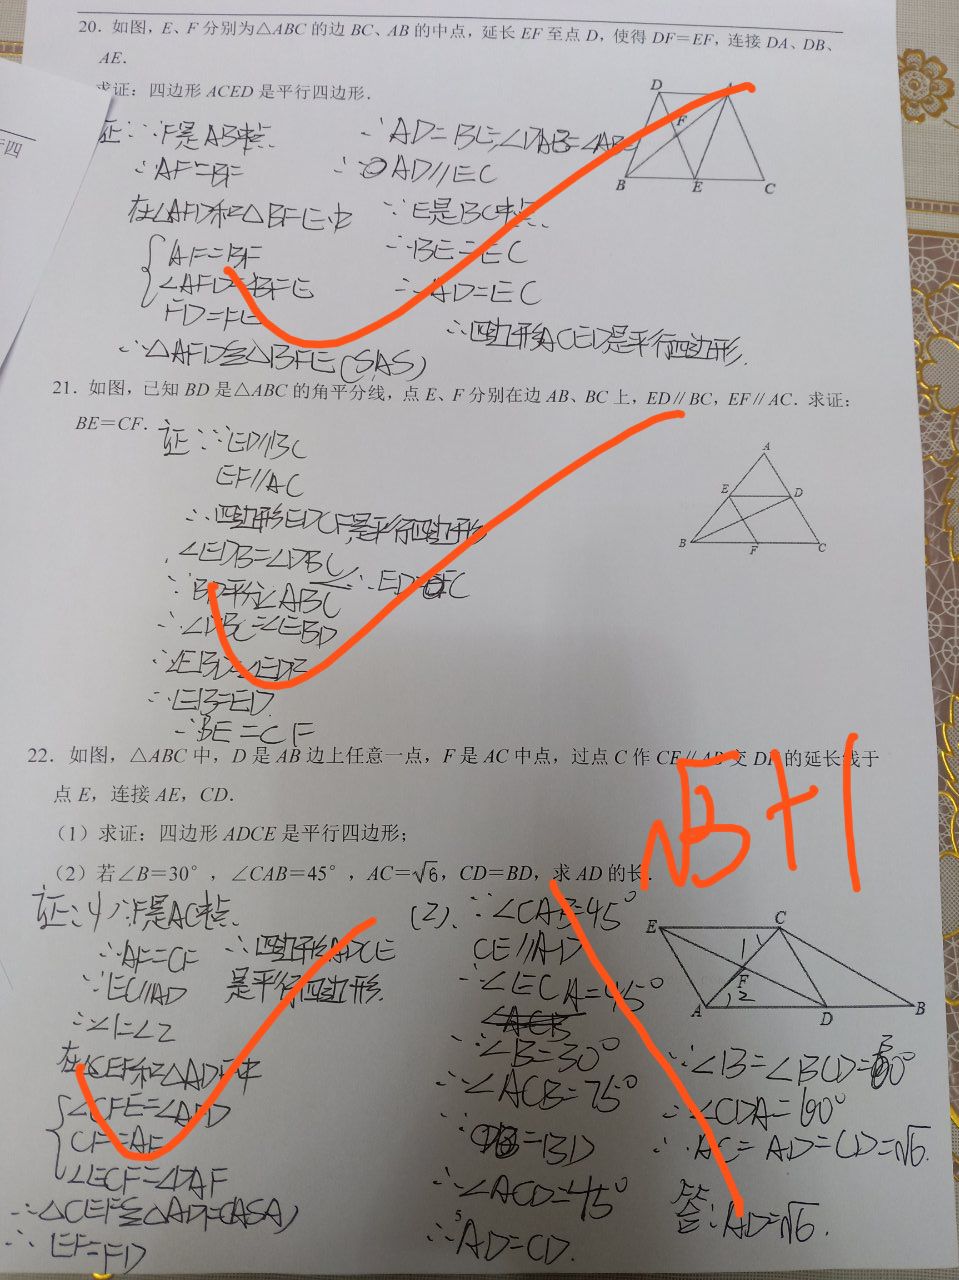 20. 如图，E、F 分别为△ABC 的边 BC、AB 的中点，延长 EF 至点 D，使得 DF＝EF，连接 DA、DB、
AE．
求证：四边形 ACED 是平行四边形．
证：∵F是AB中点.
∴AF=BF
在△AFD和△BFE中
AF=BF
∠AFD=∠BFE
FD=FE
∴△AFD≌△BFE(SAS)
∴AD=BE,∠DAB=∠ABE
∴AD//EC
∵E是BC中点.
∴BE=EC
∴AD=EC
∴四边形ACED是平行四边形.
D
A
F
B
E
C
21. 如图，已知 BD 是△ABC 的角平分线，点 E、F 分别在边 AB、BC 上，ED∥BC，EF∥AC．求证：
BE＝CF．
证：∵ED//BC
EF//AC
∴四边形EDCF是平行四边形
∠EDB=∠DBC
∴ED=FC
∵BD平分∠ABC
∴∠DBC=∠EBD
∴∠EBD=∠EDB
∴EB=ED
∴BE=CF
A
E
D
B
F
C
22. 如图，△ABC 中，D 是 AB 边上任意一点，F 是 AC 中点，过点 C 作 CE∥AB 交 DF 的延长线于
点 E，连接 AE，CD．
（1）求证：四边形 ADCE 是平行四边形；
（2）若∠B＝30°，∠CAB＝45°，AC＝√6，CD＝BD，求 AD 的长．
√3+1
证：(1)∵F是AC中点.
∴AF=CF
∵EC//AD
∴∠1=∠2
在△CEF和△ADF中
∠CFE=∠AFD
CF=AF
∠ECF=∠DAF
∴△CEF≌△ADF(ASA)
∴EF=FD
∴四边形ADCE
是平行四边形.
(2)、∵∠CAB=45°
CE//AD
∴∠ECA=45°
∵∠B=30°
∴∠ACB=75°
=BD
∴∠ACD=45°
∴AD=CD.
∴∠B=∠BCD=30°
∴∠CDA=60°
∴AC=AD=CD=√6.
答：AD=√6.
E
C
1
F
2
A
D
B